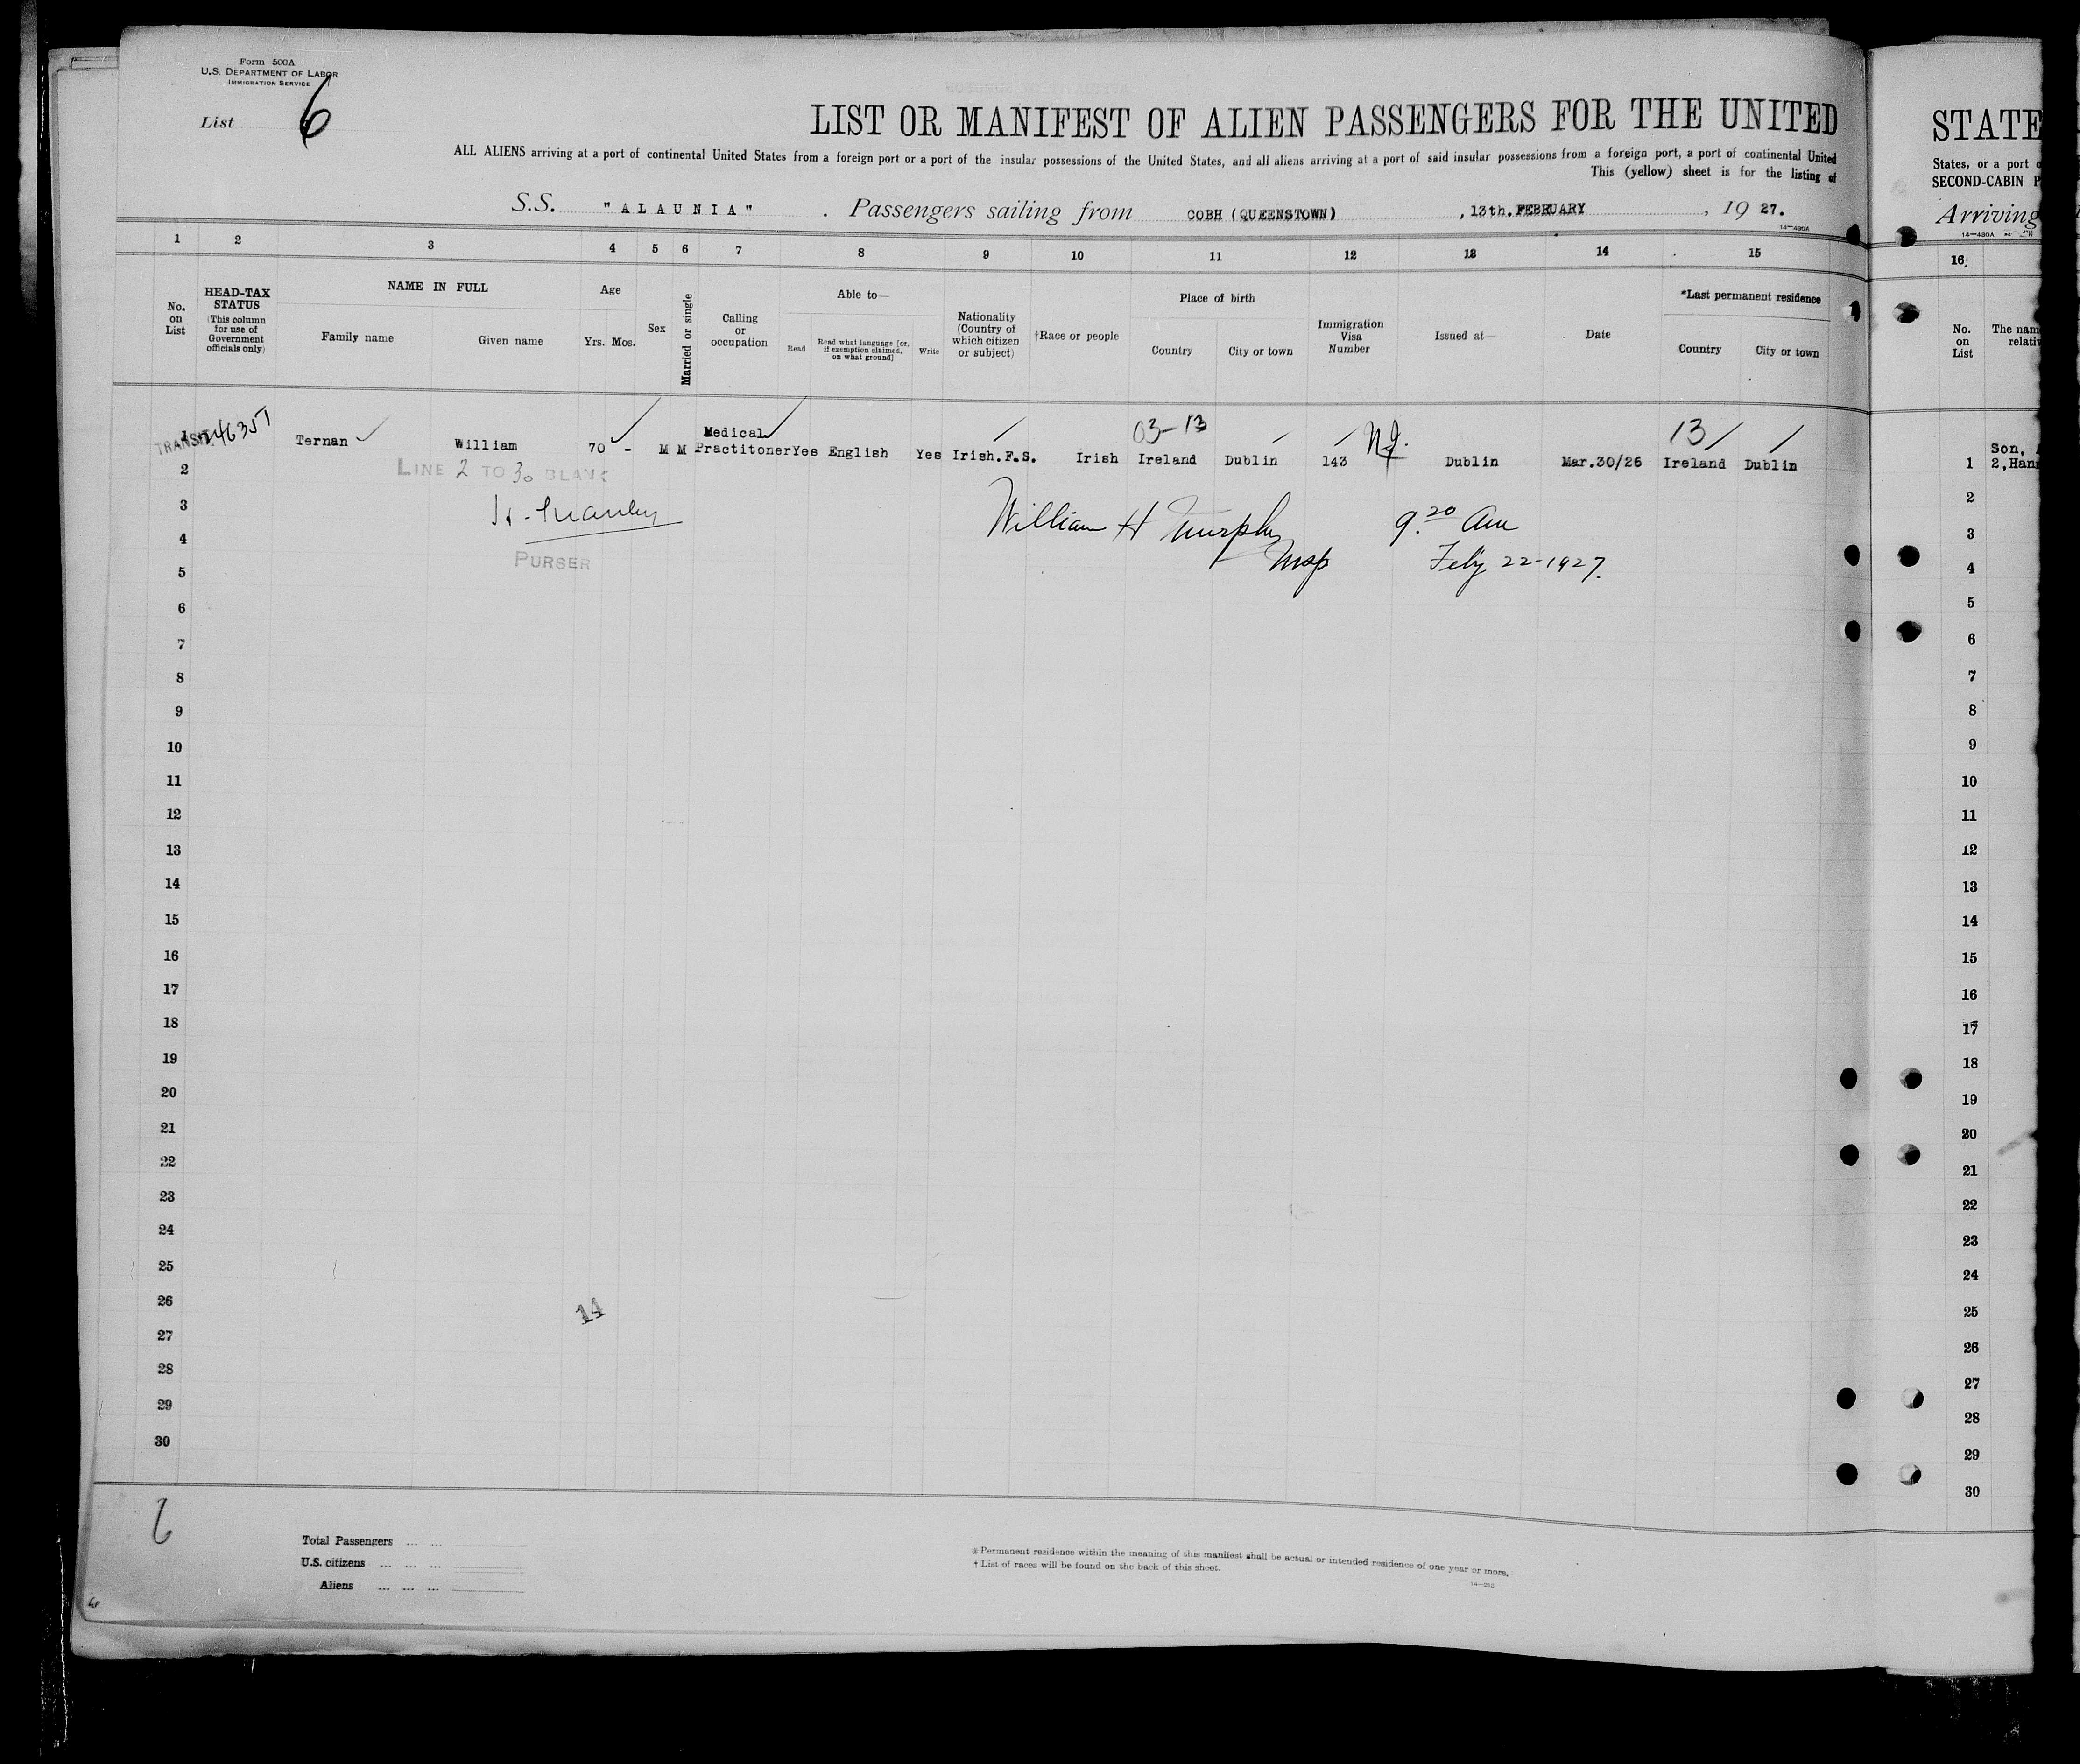 Form 500A
U.S. DEPARTMENT OF LABOR
IMMIGRATION SERVICE
List 6
LIST OR MANIFEST OF ALIEN PASSENGERS FOR THE UNITED
ALL ALIENS arriving at a port of continental United States from a foreign port or a port of the insular possessions of the United States, and all aliens arriving at a port of said insular possessions from a foreign port, a port of continental United
This (yellow) sheet is for the listing of
S.S. "ALAUNIA" . Passengers sailing from COBH (QUEENSTOWN) , 13th. FEBRUARY , 19 27.
14—430A
1 2 3 4 5 6 7 8 9 10 11 12 13 14 15
No. on List
HEAD-TAX STATUS
(This column for use of Government officials only)
NAME IN FULL
Family name
Given name
Age
Yrs. Mos.
Sex
Married or single
Calling or occupation
Able to—
Read
Read what language [or, if exemption claimed, on what ground]
Write
Nationality (Country of which citizen or subject)
†Race or people
Place of birth
Country
City or town
Immigration Visa Number
Issued at—
Date
*Last permanent residence
Country
City or town
03-13
13
TRANSIT
1 Ternan William 70 - M M Medical Practitoner Yes English Yes Irish.F.S. Irish Ireland Dublin 143 Dublin Mar.30/26 Ireland Dublin
2
LINE 2 TO 30 BLANK
3
William H Murphy
Insp
9.20 Am
Feb'y 22-1927.
4
PURSER
5
6
7
8
9
10
11
12
13
14
15
16
17
18
19
20
21
22
23
24
25
26
14
27
28
29
30
6
Total Passengers
U.S. citizens
Aliens
* Permanent residence within the meaning of this manifest shall be actual or intended residence of one year or more.
† List of races will be found on the back of this sheet.
STATE
States, or a port o
SECOND-CABIN P
Arriving
14—430A
16
No. on List
The nam
relativ
Son,
1 2,Han
2
3
4
5
6
7
8
9
10
11
12
13
14
15
16
17
18
19
20
21
22
23
24
25
26
27
28
29
30